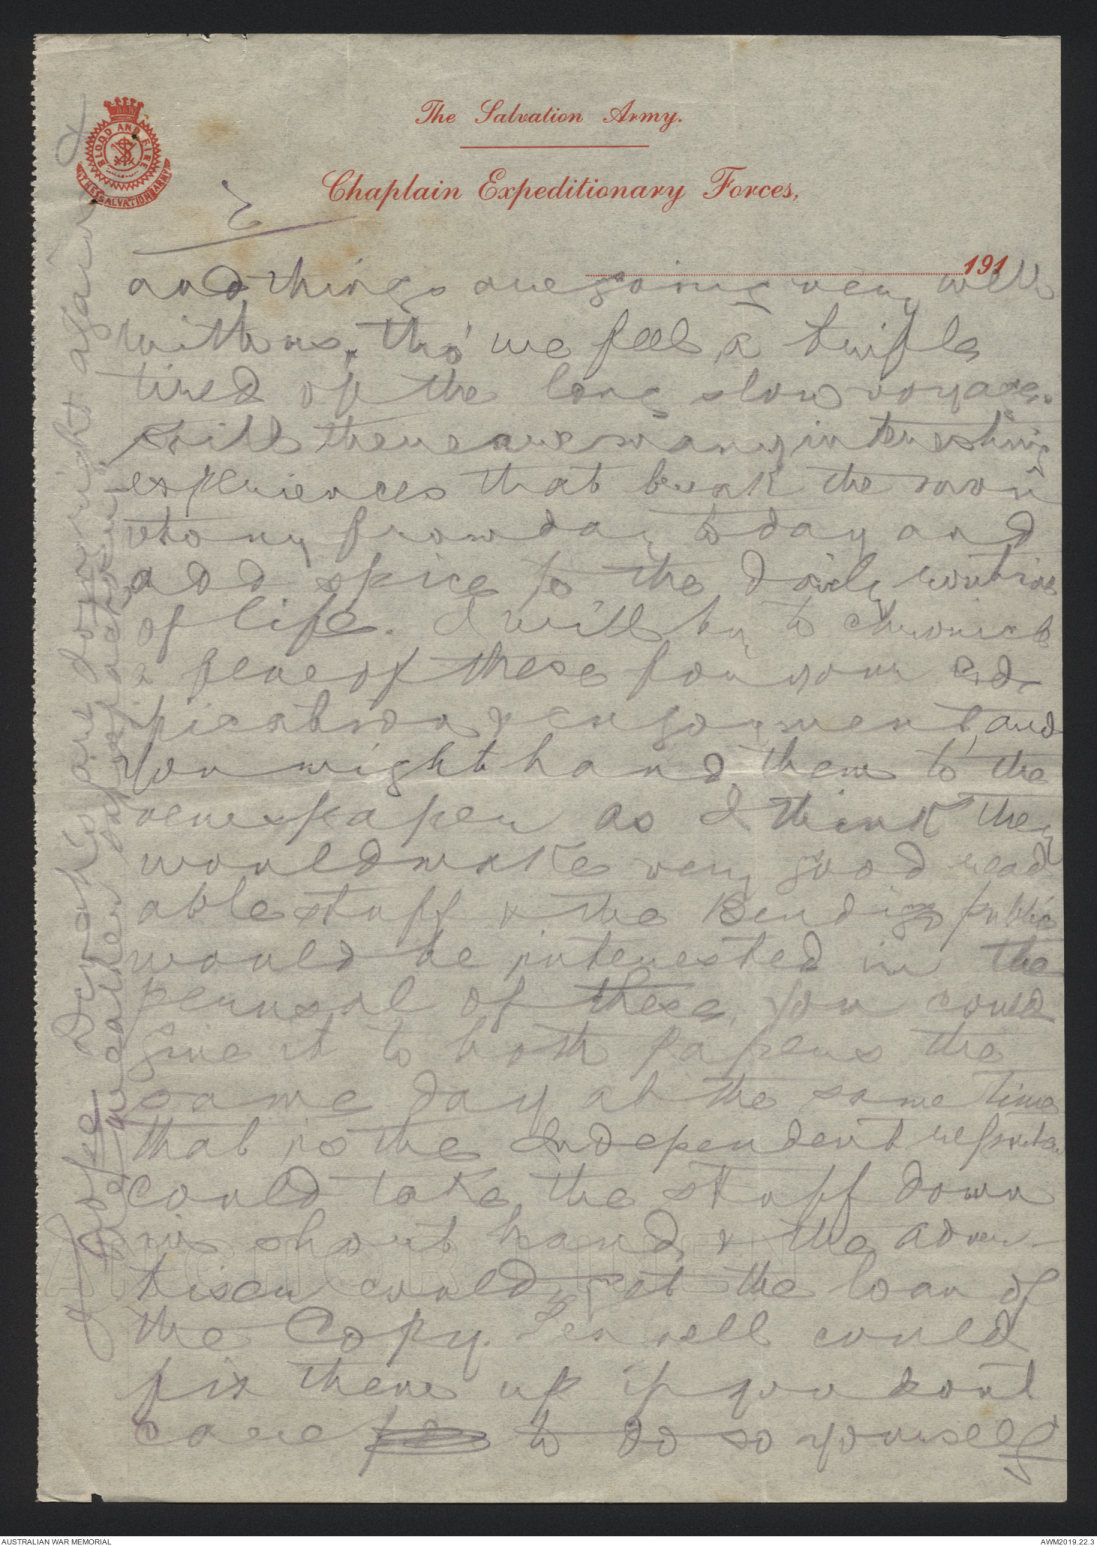 The Salvation Army.
Chaplain Expeditionary Forces,
BLOOD AND FIRE
THE SALVATION ARMY
2
191
and things are going very well
with us, tho' we feel a trifle
tired of the long slow voyage.
still there are many interesting
experiences that break the mon
otony from day to day and
add spice to the daily routine
of life. I will try to chronicle
a few of these for your ed-
ification & enjoyment, and
you might hand them to the
newspaper as I think they
would make very good read
able stuff & the Bendigo public
would be interested in the
perusal of these, you could
give it to both papers the
same day at the same time
that is the Independent reporter
could take the stuff down
in short hand, & the Adver-
tiser could get the loan of
the Copy. could
fix them up if you dont
care to do so yourself
I hope are downright again &
weather